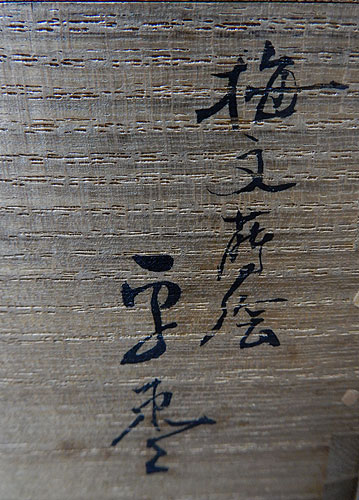 梅文蒔絵
平棗